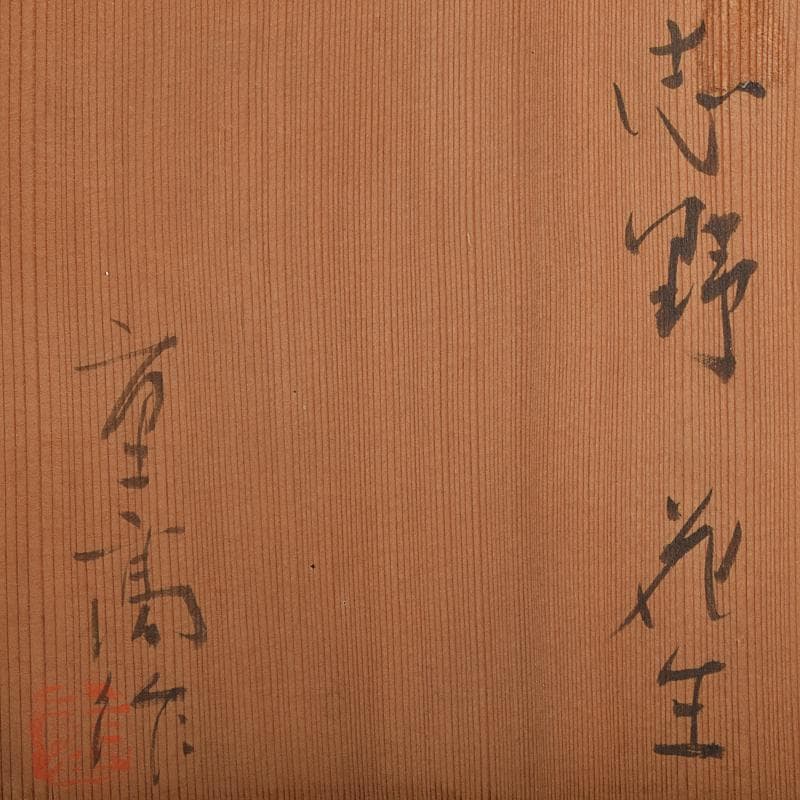 志野 花生
重高作